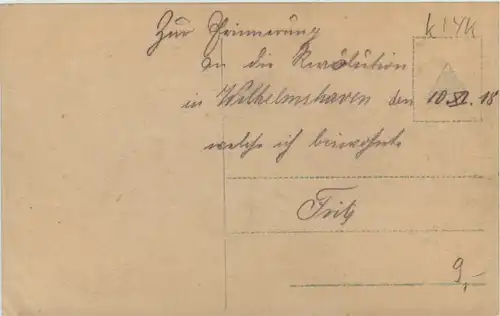 K 14K
Zur Erinnerung
an die Revolution
in Wilhelmshaven den 10.XI.18
welche ich beiwohnte
Fritz
9,-